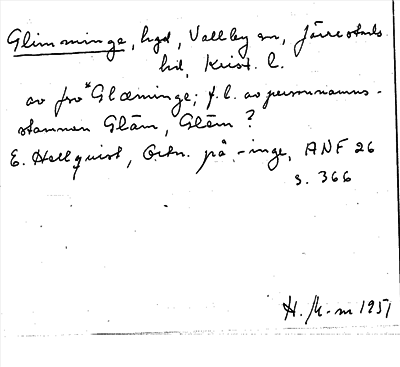 Glimminge, hgd, Vallby sn, Järrestads
hd, Krist. l.
av fro *Glæminge; f. l. av personnamns-
stammen Glām, Glēm ?
E. Hellquist, Ortn. på -inge, ANF 26
s. 366
H. K-m 1951